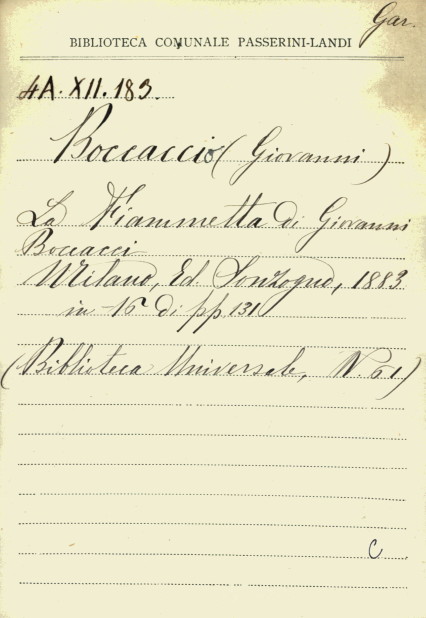 Gar.
BIBLIOTECA COMUNALE PASSERINI-LANDI
4A. XII. 183.
Boccaccio (Giovanni)
La Fiammetta di Giovanni
Boccacci
Milano, Ed. Sonzogno, 1883
in 16° di pp 131
(Biblioteca Universale, N. 61)
C